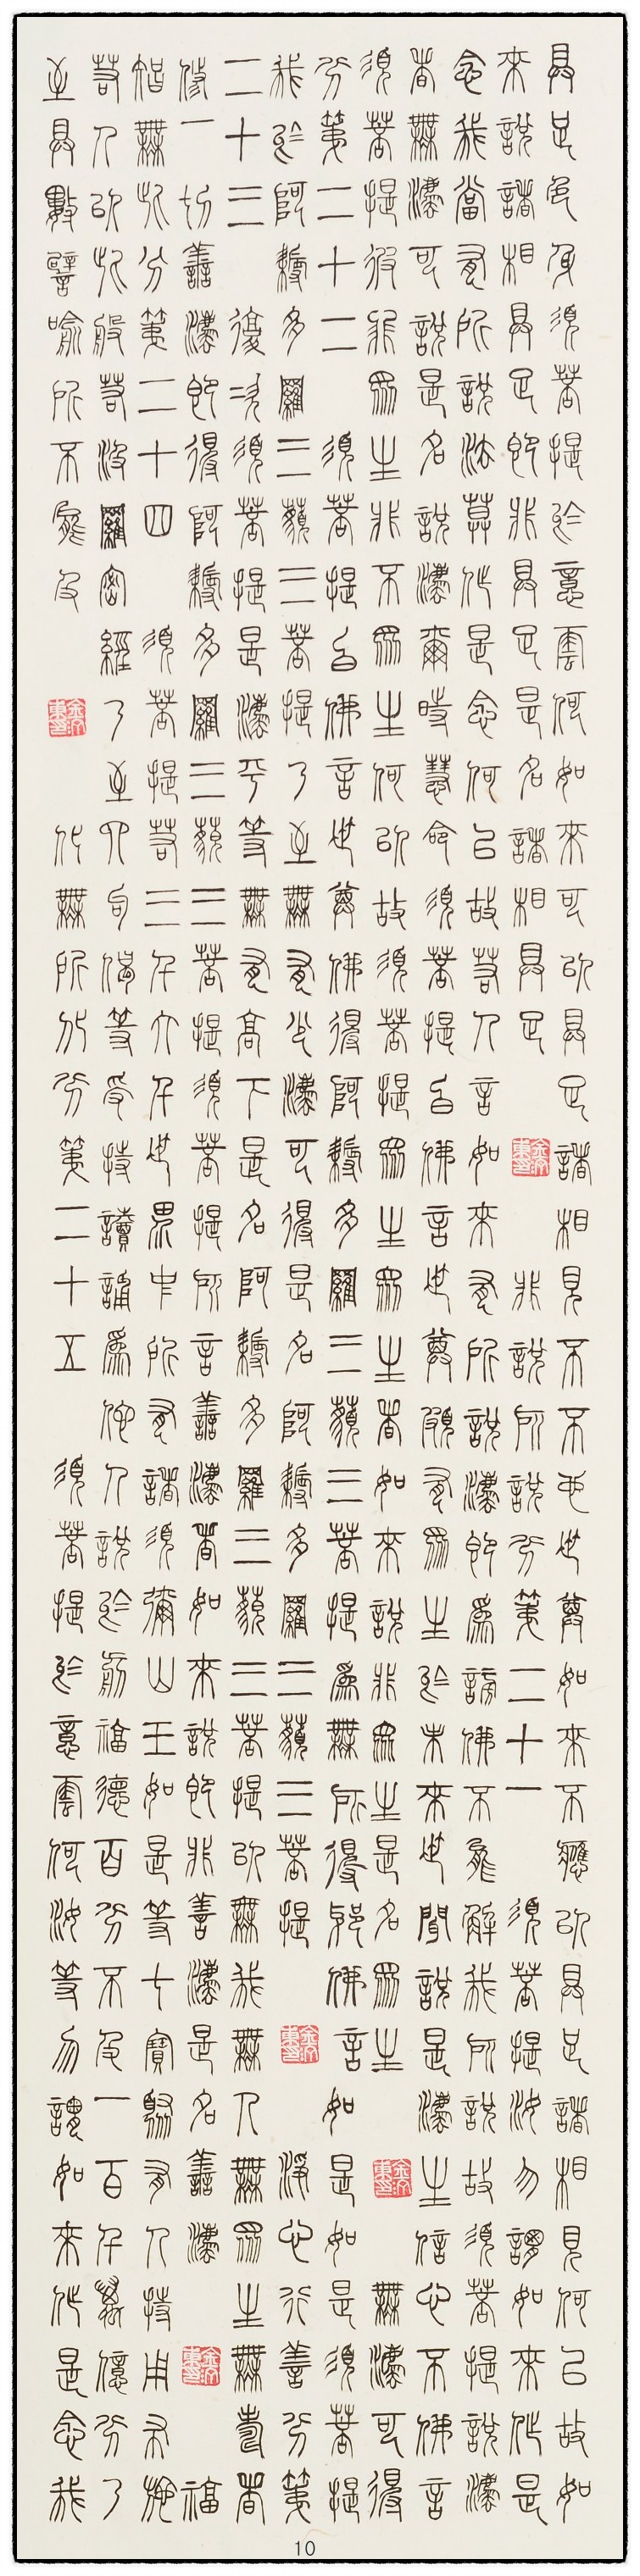 具足色身須菩提於意雲何如來可以具足諸相見不不也世尊如來不應以具足諸相見何以故如
來說諸相具足即非具足是名諸相具足 非說所說分第二十一 須菩提汝勿謂如來作是
念我當有所說法莫作是念何以故若人言如來有所說法即為謗佛不能解我所說故須菩提說法
者無法可說是名說法爾時慧命須菩提白佛言世尊頗有眾生於未來世聞說是法生信心不佛言
須菩提彼非眾生非不眾生何以故須菩提眾生眾生者如來說非眾生是名眾生 無法可得
分第二十二 須菩提白佛言世尊佛得阿耨多羅三藐三菩提為無所得耶佛言如是如是須菩提
我於阿耨多羅三藐三菩提乃至無有少法可得是名阿耨多羅三藐三菩提 淨心行善分第
二十三 復次須菩提是法平等無有高下是名阿耨多羅三藐三菩提以無我無人無眾生無壽者
修一切善法即得阿耨多羅三藐三菩提須菩提所言善法者如來說即非善法是名善法 福
智無比分第二十四 須菩提若三千大千世界中所有諸須彌山王如是等七寶聚有人持用布施
若人以此般若波羅蜜經乃至四句偈等受持讀誦為他人說於前福德百分不及一百千萬億分乃
至算數譬喻所不能及 化無所化分第二十五 須菩提於意雲何汝等勿謂如來作是念我
10